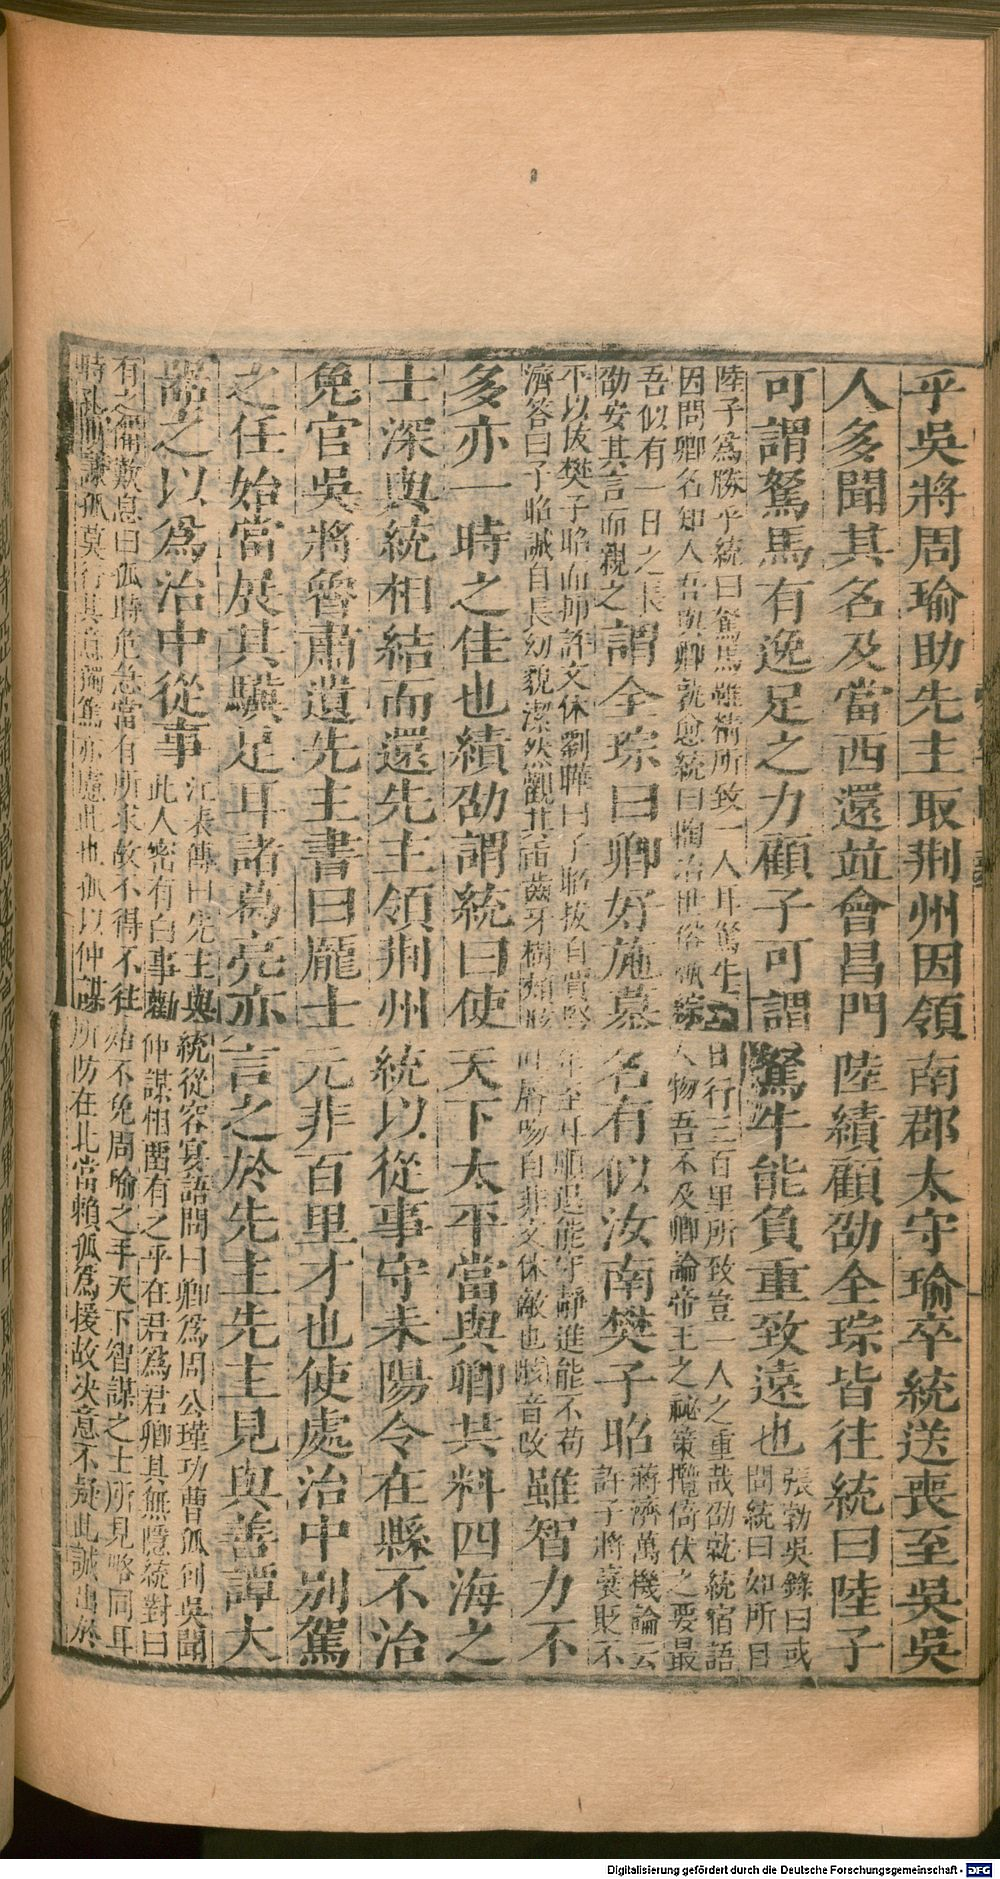 乎吳將周瑜助先主取荆州因領南郡太守瑜卒統送喪至吳吳
人多聞其名及當西還並會昌門陸績顧劭全琮皆往統曰陸子
可謂駑馬有逸足之力顧子可謂駑牛能負重致遠也張勃吳錄曰或
問統曰如所目
陸子爲勝乎統曰駑馬雖精所致一人耳駑牛一日行三百里所致豈一人之重哉劭就統宿語
因問卿名知人吾與卿孰愈統曰陶冶世俗甄綜人物吾不及卿論帝王之祕策攬倚伏之要最
吾似有一日之長
劭安其言而親之謂全琮曰卿好施慕名有似汝南樊子昭蔣濟萬機論云
許子將襃貶不
平以拔樊子昭而抑許文休劉曄曰子昭拔自賈豎年至耳順退能守靜進能不苟
濟答曰子昭誠自長幼貌潔然觀其臿齒牙樹頰胲吐脣吻自非文休敵也胲音改雖智力不
多亦一時之佳也績劭謂統曰使天下太平當與卿共料四海之
士深與統相結而還先主領荆州統以從事守耒陽令在縣不治
免官吳將魯肅遺先主書曰龐士元非百里才也使處治中別駕
之任始當展其驥足耳諸葛亮亦言之於先主先主見與善譚大
器之以爲治中從事江表傳曰先主與統從容宴語問曰卿爲周公瑾功曹孤到吳聞
此人密有白事勸仲謀相留有之乎在君爲君卿其無隱統對曰
有之備歎息曰孤時危急當有所求故不得不往殆不免周瑜之手天下智謀之士所見略同耳
時孔明諫孤莫行其意獨篤亦慮此也孤以仲謀所防在北當賴孤爲援故决意不疑此誠出於
Digitalisierung gefördert durch die Deutsche Forschungsgemeinschaft - DFG